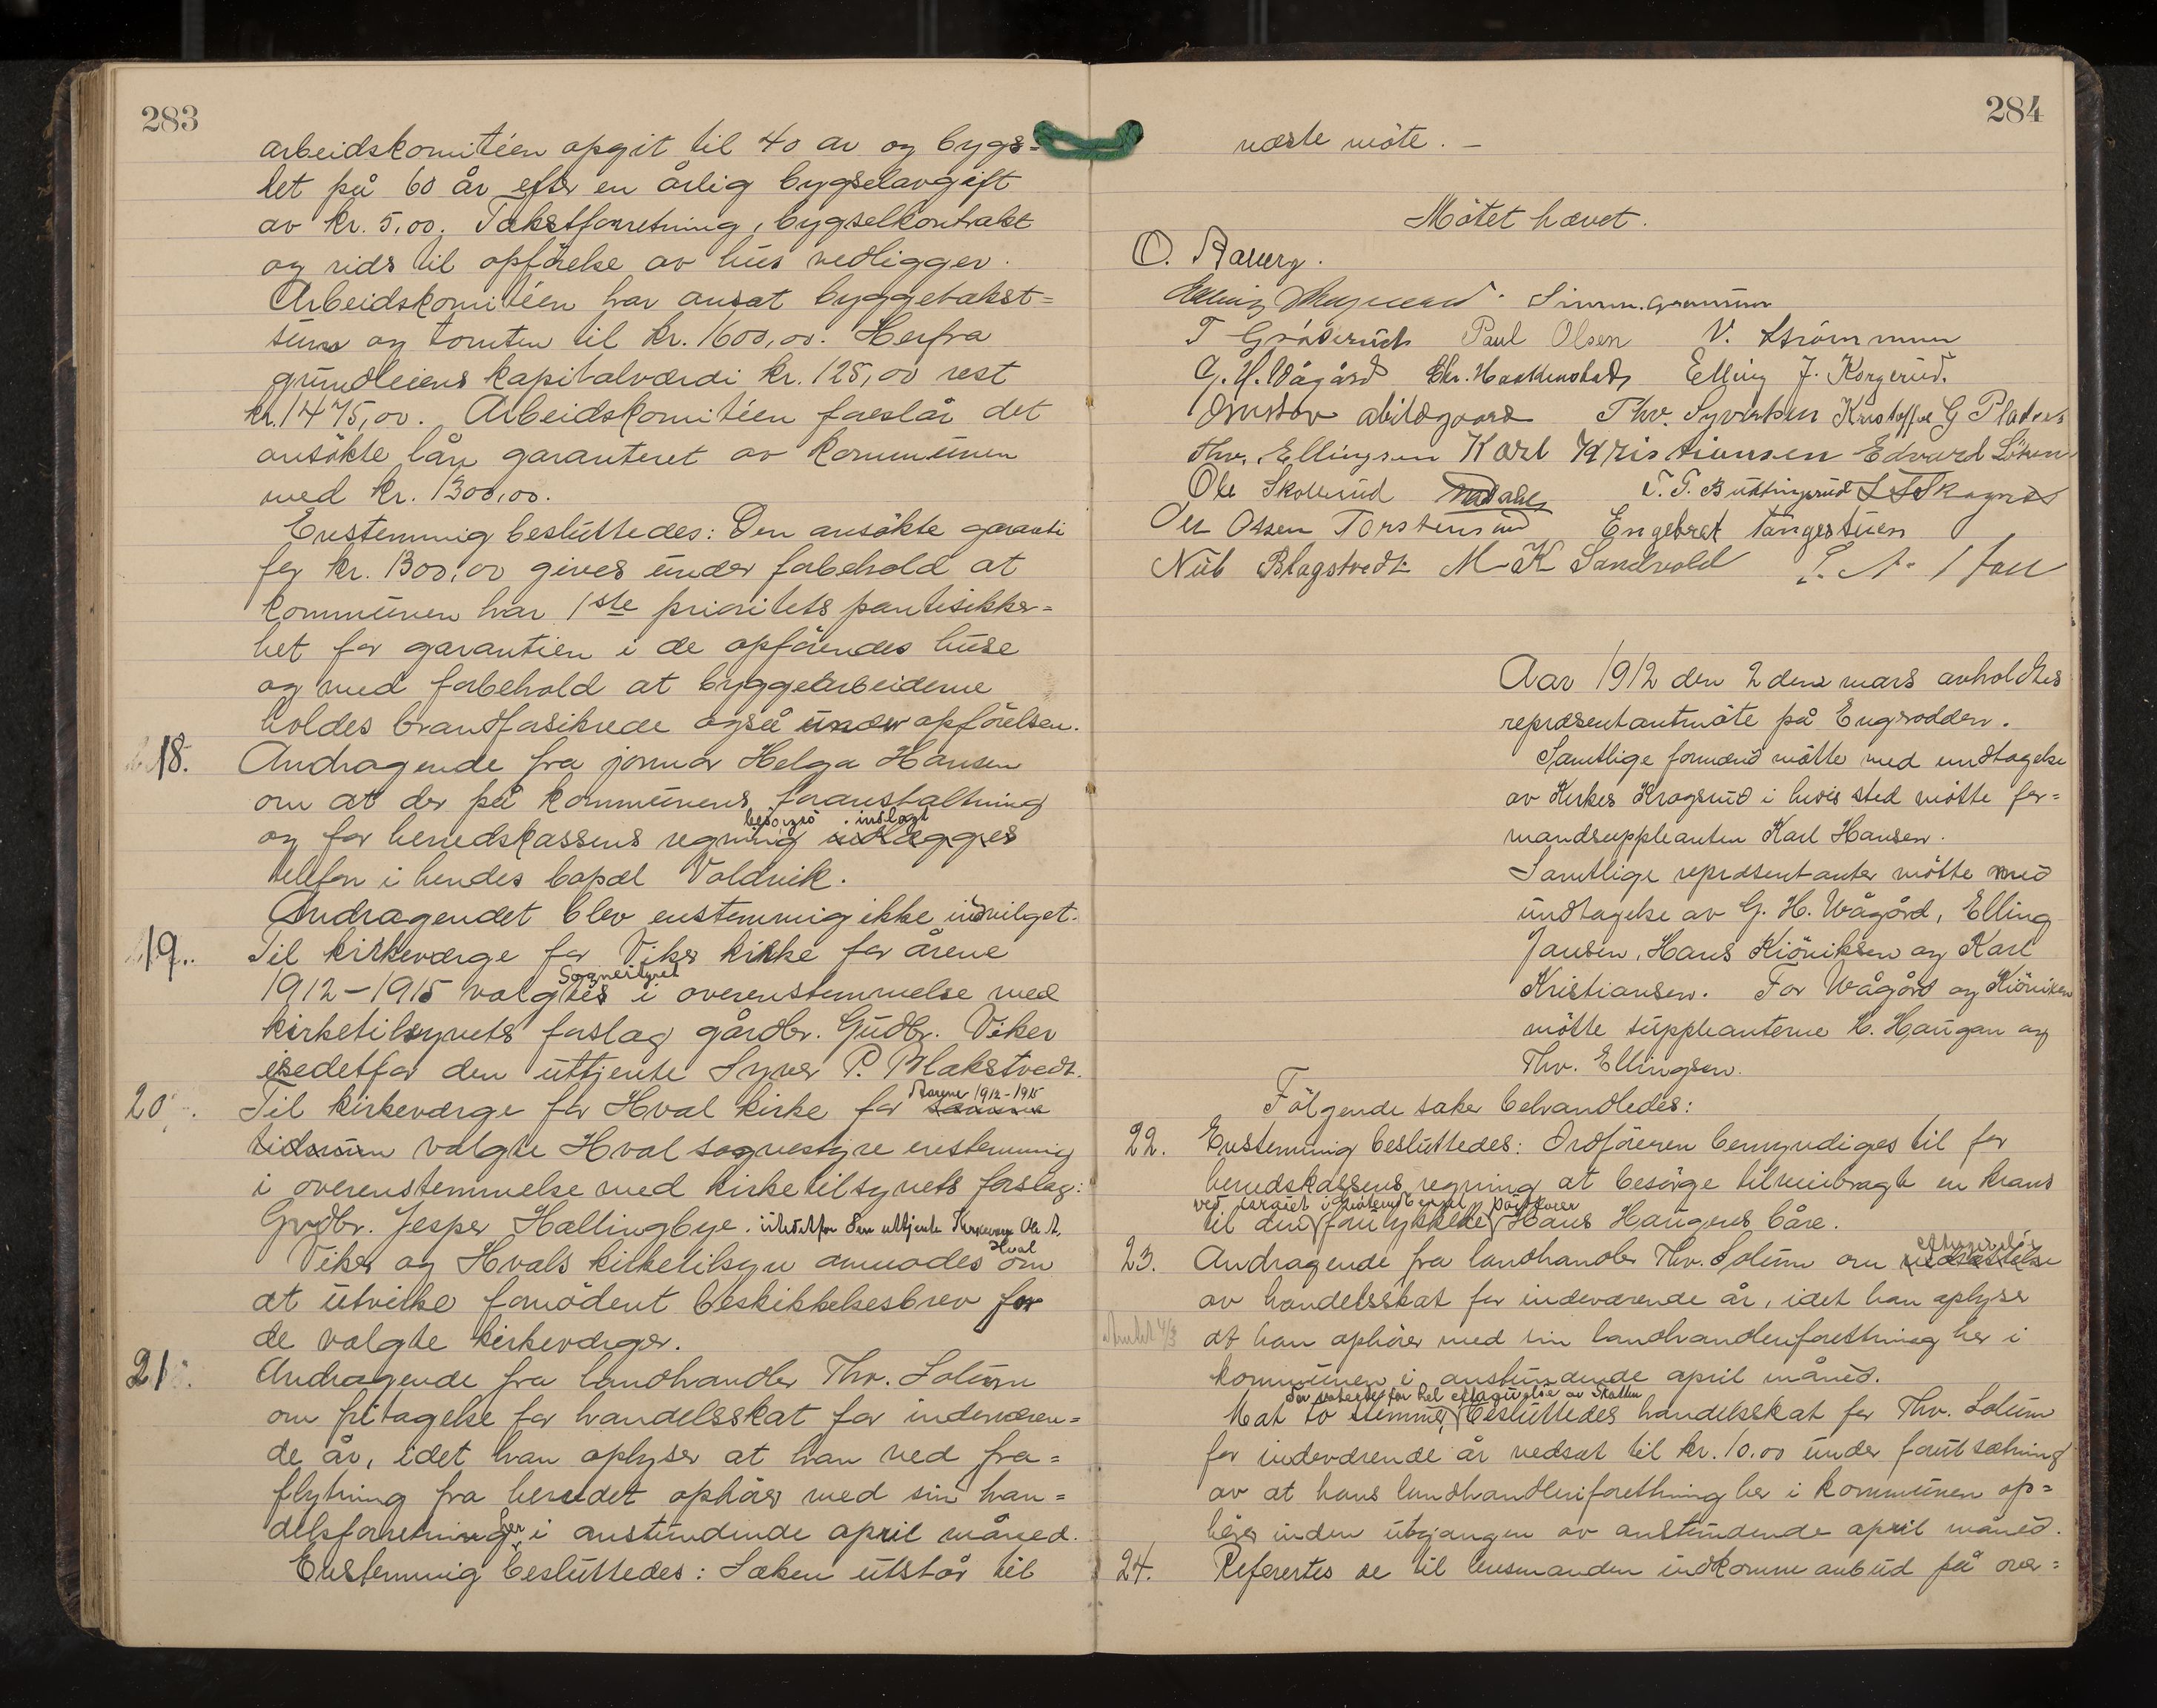 283
arbeidskomitéen opgit til 40 ar og bygs=
let på 60 år efter en årlig bygselavgift
av kr. 5,00. Takstforretning, bygselkontrakt
og rids til opførelse av hus vedligger.
Arbeidskomitéen har ansat byggetakst=
sum og tomten til kr. 1600,00. Herfra
grundleiens kapitalværdi kr. 125,00 rest
kr. 1475,00. Arbeidskomitéen foreslår det
ansökte lån garanteret av kommunen
med kr. 1300,00.
Enstemmig besluttedes: Den ansökte garanti
for kr. 1300,00 gives under forbehold at
kommunen har 1ste prioritets pantesikker=
het for garantien i de opförendes huse
og med forbehold at byggearbeiderne
holdes brandforsikrede også under opförelsen.
18. Andragende fra jormor Helga Hansen
om at der på kommunens foranstaltning
besörges indlagt
og for herredskassens regning indlægges
telefon i hendes bopæl Voldvik.
Andragendet blev enstemmig ikke indvilget.
19. Til kirkeværge for Viker kirke for årene
Sognestyret
1912-1915 valgtes i overenstemmelse med
kirketilsynets forslag gårdbr. Gudbr. Viker
istedetfor den uttjente Syver P. Blakstvedt.
20. Til kirkeværge for Hval kirke for samme
Aarene 1912-1915
tidsrum valgte Hval sognestyre enstemmig
i overenstemmelse med kirketilsynets forslag:
Grdbr. Jesper Hallingbye. istedetfor den uttjente Kirkeverge Ole A.
Hval
Viker og Hvals kirketilsyn anmodes om
at utvirke fornödent beskikkelsesbrev for
de valgte kirkeværger.
21. Andragende fra landhandler Thv. Solum
om fritagelse for handelsskat for indeværen=
de år, idet han oplyser at han ved fra=
flytning fra herredet ophörer med sin han=
delsforretning her i anstundende april måned.
Enstemmig besluttedes: Saken utstår til
284
næste möte. –
Mötet hævet.
O. Aaberg.
T Gröterud Paul Olsen V. Strömmen
G. H. Vågård Chr. Haakenstad Elling J. Korgerud.
Gustav Abildgaard Thv. Syversen Kristoffer G
Thv. Ellingsen Karl Kristiansen Edvard Löken
Ole Skollerud T. T. Buttingsrud
Ole Ossen Torstensrud Engebret Tangestuen
Nub Blagstvedt M K Sandvold
Aar 1912 den 2den mars avholdtes
repræsentantmöte på Engerodden.
Samtlige formænd mötte med undtagelse
av Kirkes Kragsrud i hvis sted mötte for=
mandsuppleanten Karl Hansen.
Samtlige repræsentanter mötte med
undtagelse av G. H. Wågård, Elling
Jansen, Hans Kiöniksen og Karl
Kristiansen. For Wågård og Kiöniksen
mötte suppleanterne H. Haugan og
Thv. Ellingsen.
Fölgende saker behandledes:
22. Enstemmig besluttedes: Ordföreren bemyndiges til for
herredskassens regning at besörge tilveiebragt en krans
til den forulykkede Hans Haugens båre.
23. Andragende fra landhandler Thv. Solum om nedsættelse
eftergivelse
av handelsskat for indeværende år, idet han oplyser
at han ophörer med sin landhandlerforretning her i
kommunen i anstundende april måned.
der voterte for hel eftergivelse av Skatten
Mot to stemmer, besluttedes handelsskat for Thv. Solum
for indeværende år nedsat til kr. 10.00 under forutsætning
av at hans landhandlerforettning her i kommunen op=
hörer inden utgangen av anstundende april måned.
24. Referertes de til lensmanden indkomne anbud på over=